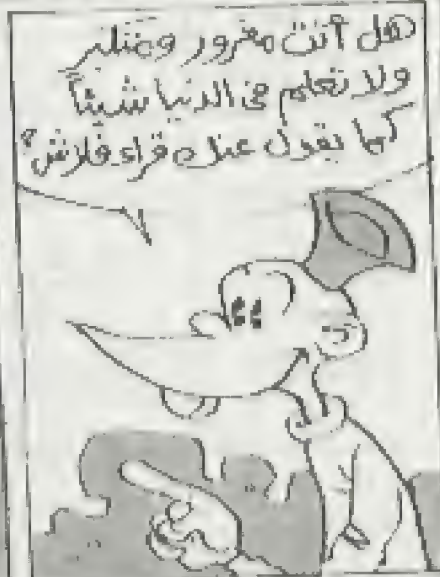 هل أنت مغرور ومتكبر
ولا تعلم في الدنيا شيئاً
كما يقول عنك قراء فلاش؟